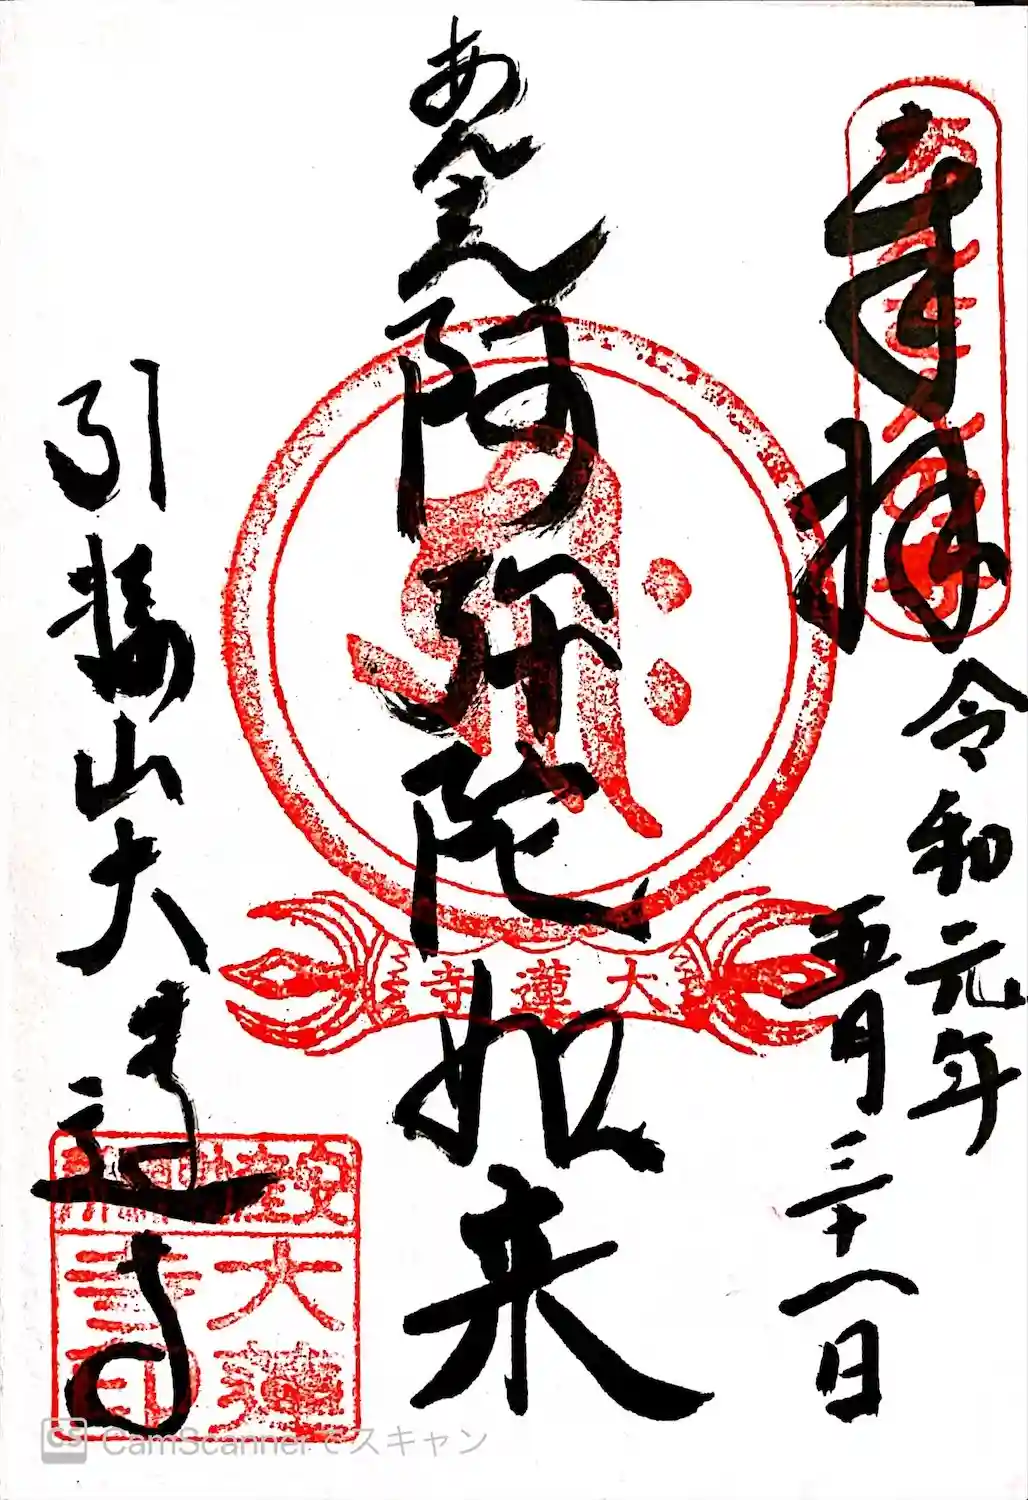 奉拝
令和元年
五月三十一日
あんざん
阿弥陀如来
大蓮寺
引接山大蓮寺
安産
大蓮
寺印
CS CamScannerでスキャン